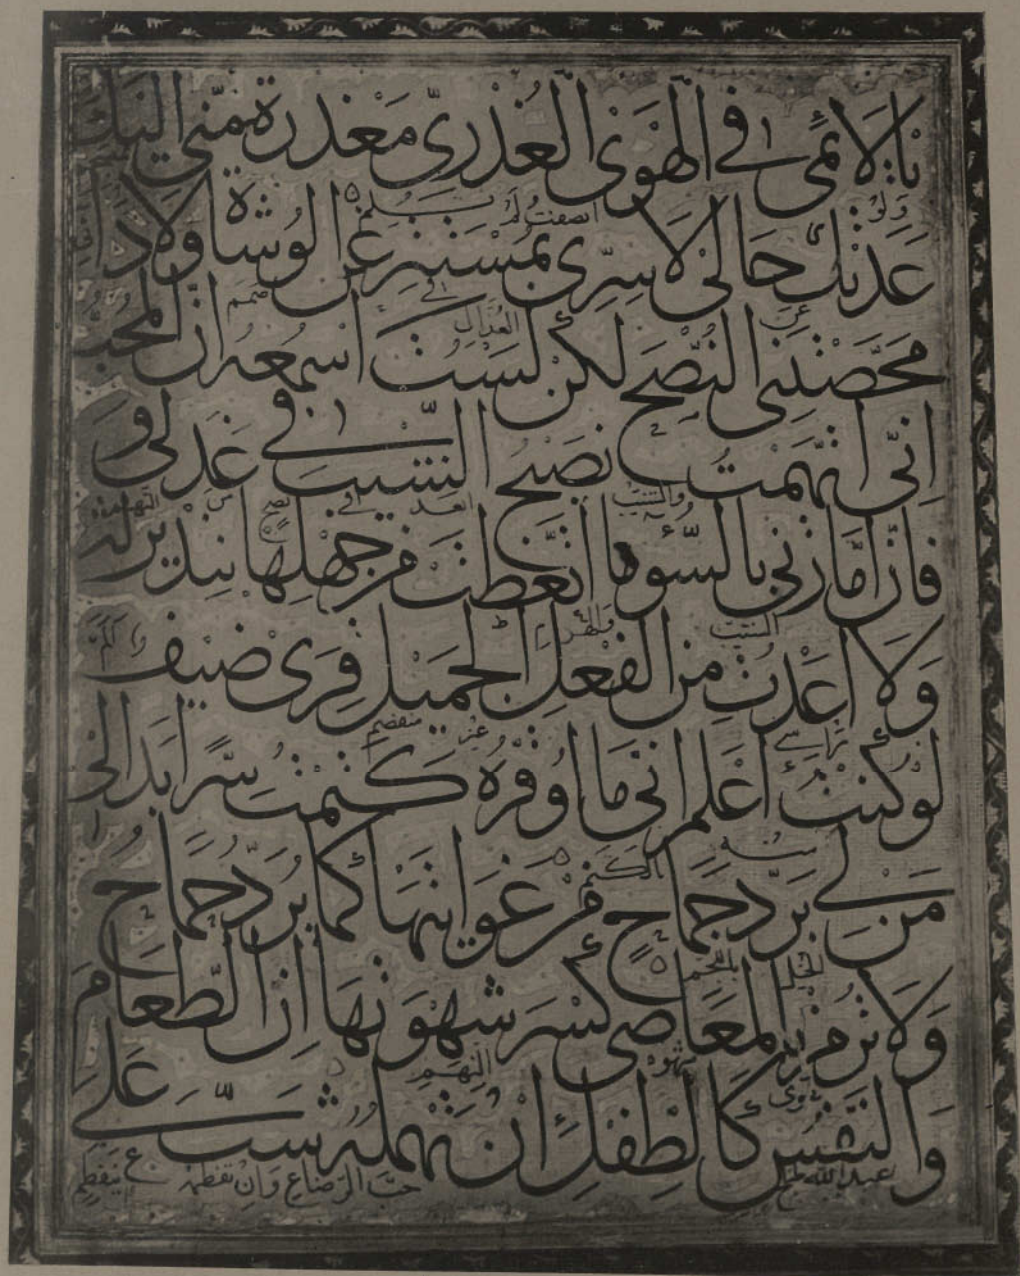 يا لائمى في الهوى العذرى معذرة منى اليك
ولو انصفت لم تلم
عدتك حالى لا سرى بمستتر عن الوشاة ولا دا
محضتنى النصح لكن لست اسمعه ان المحب
عن العذال في صمم
انى اتهمت نصيح الشيب في عذلى و
والشيب ابعد في نصح من التهم
فان امارتى بالسوء ما اتعظت من جهلها بنذير
الشيب والهرم
ولا اعدت من الفعل الجميل قرى ضيف الم
براسى غير
لو كنت اعلم انى ما اوقره كتمت سرا بدا لى
منه بالكتم
من لى برد جماح من غوايتها كما يرد جماح
الخيل باللجم
ولا ترم بالمعاصى كسر شهوتها ان الطعام
يقوى شهوة النهم
والنفس كالطفل ان تهمله شب على
حب الرضاع وان تفطمه ينفطم
عبدالله